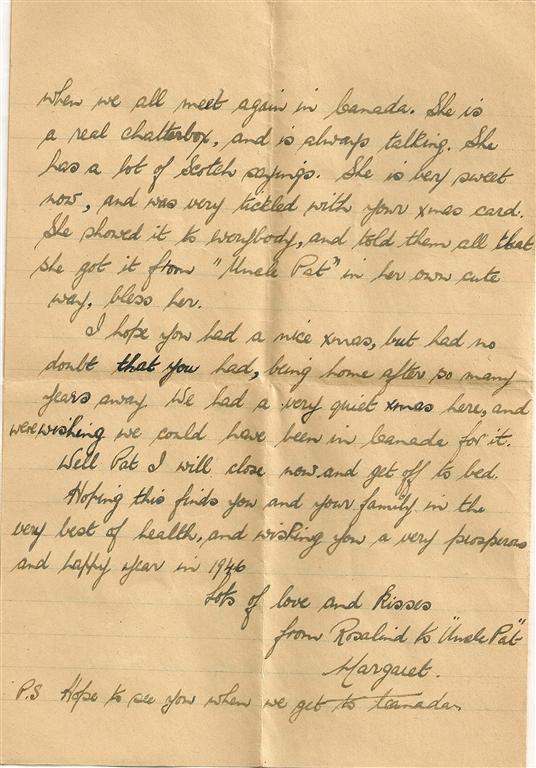 when we all meet again in Canada. She is
a real chatterbox, and is always talking. She
has a lot of Scotch sayings. She is very sweet
now, and was very tickled with your xmas card.
She showed it to everybody, and told them all that
she got it from "Uncle Pat" in her own cute
way, bless her.
I hope you had a nice xmas, but had no
doubt that you had, being home after so many
years away. We had a very quiet xmas here, and
were wishing we could have been in Canada for it.
Well Pat I will close now and get off to bed.
Hoping this finds you and your family in the
very best of health, and wishing you a very prosperous
and happy year in 1946
Lots of love and kisses
from Rosalind to "Uncle Pat"
Margaret.
P.S Hope to see you when we get to Canada.